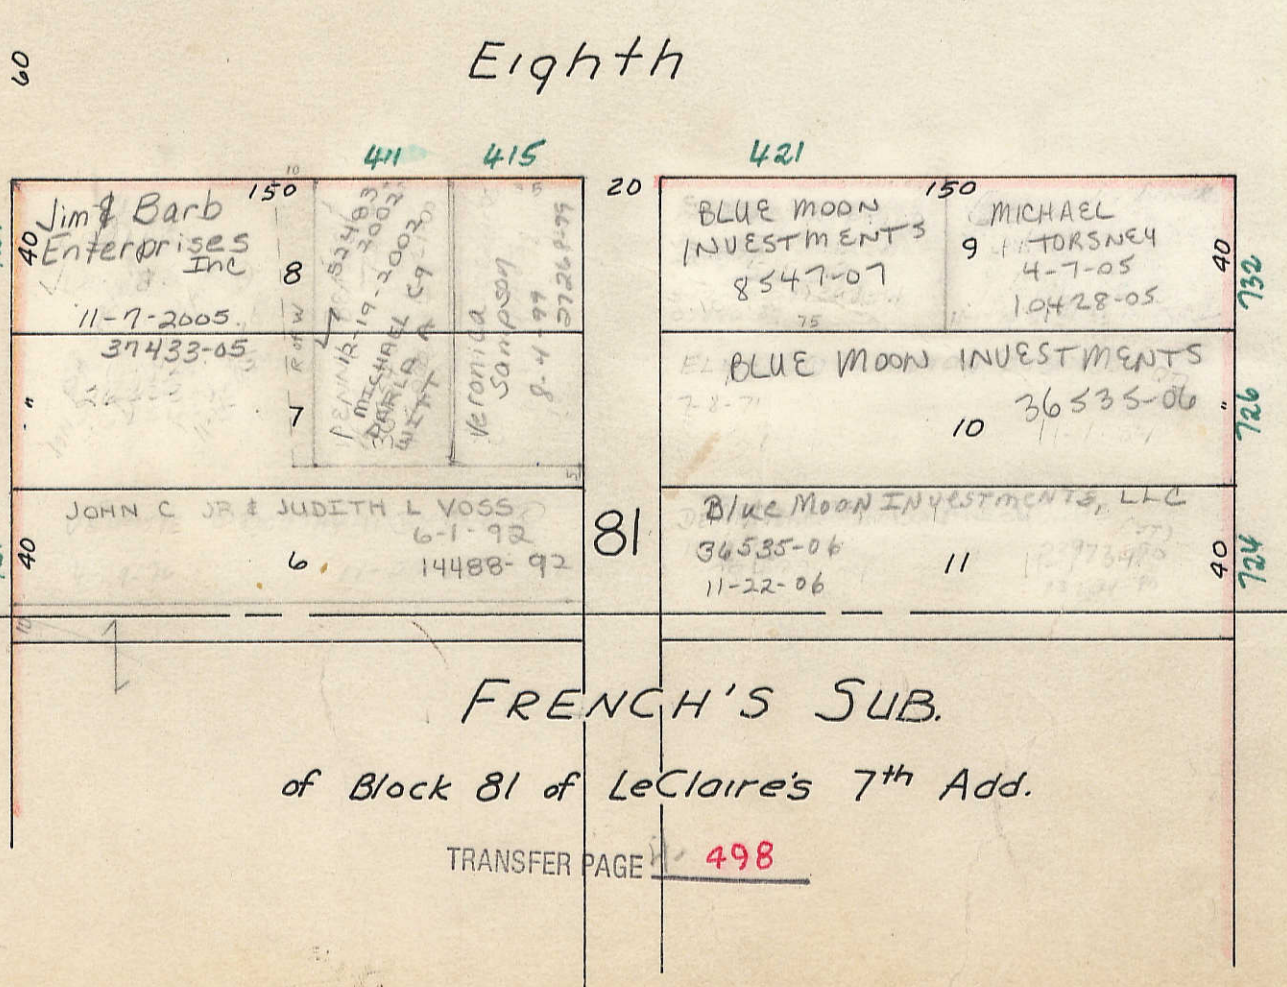 Eighth
60
411
415
421
10
150
20
150
Jim & Barb
Enterprises
Inc
40
8
11-7-2005
37433-05
"
7
R of W
MICHAEL
12-19-2002
Veronica
Sampson
8-4-99
5
BLUE MOON
INVESTMENTS
8547-07
75
9
MICHAEL
TORSNEY
4-7-05
10428-05
40
732
BLUE MOON INVESTMENTS
36535-06
10
"
726
JOHN C JR & JUDITH L VOSS
6-1-92
14488-92
40
6
81
Blue Moon INVESTMENTS, LLC
36535-06
11-22-06
11
40
724
10
FRENCH'S SUB.
of Block 81 of LeClaire's 7th Add.
TRANSFER PAGE 498